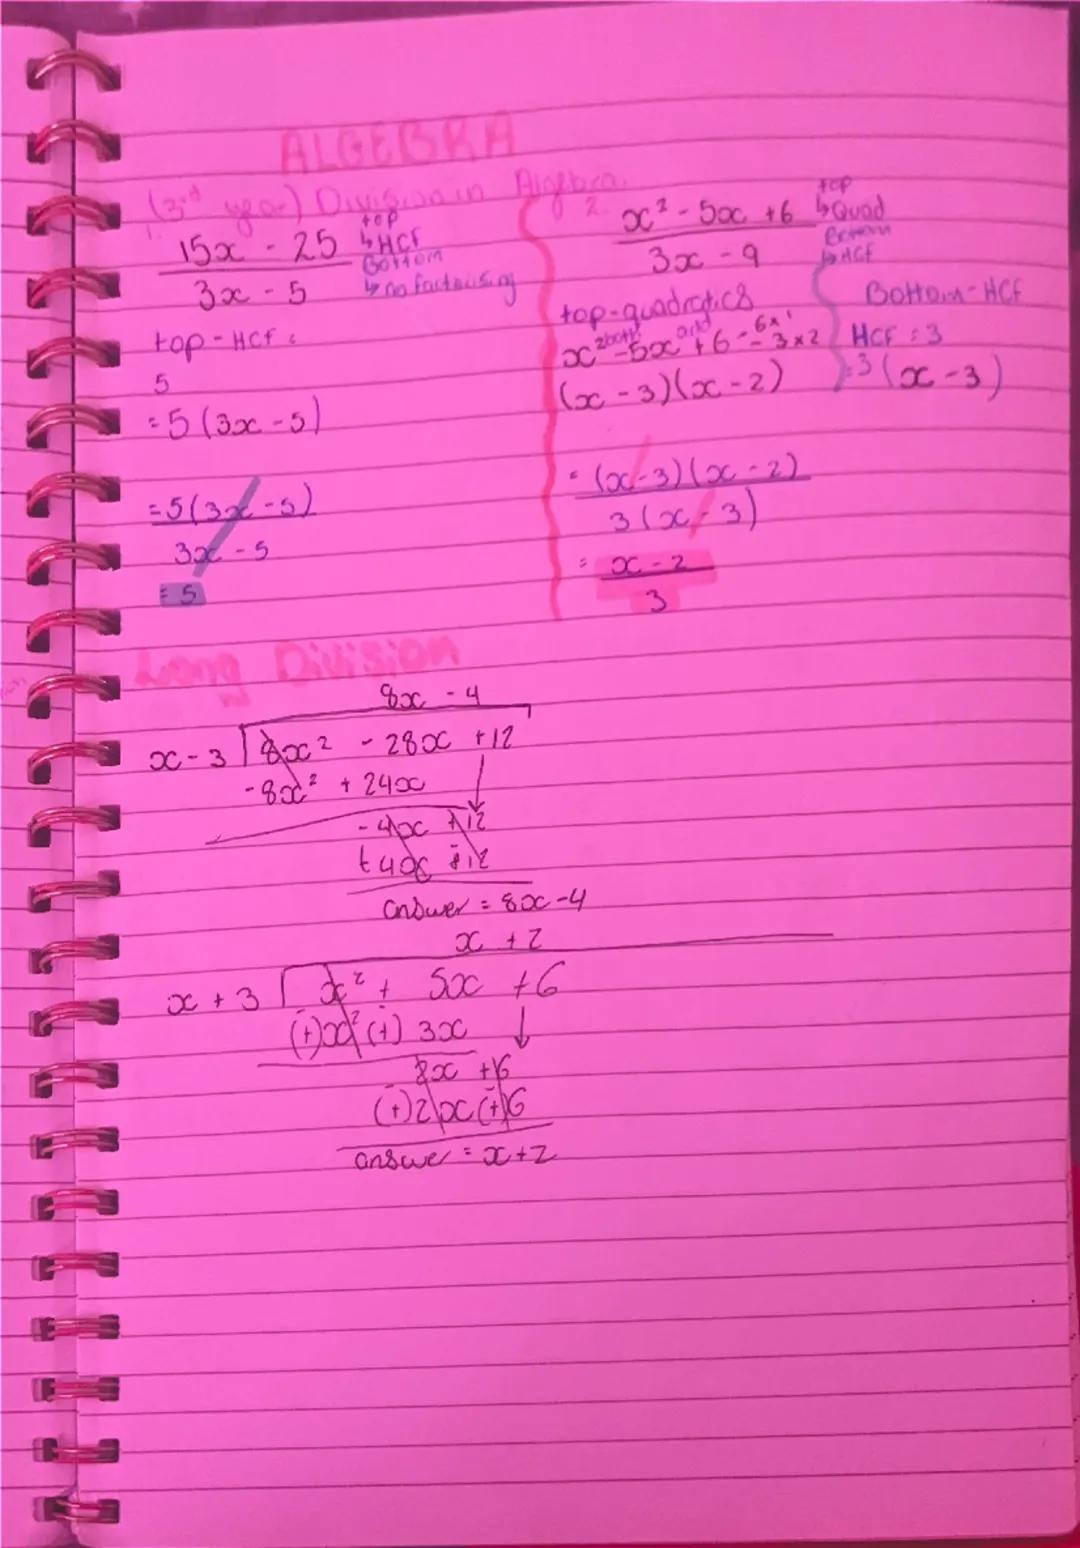 ALGEBRA
(3rd year) Division in Algebra.
1.
15x - 25
3x - 5
top
↳ HCF
Bottom
↳ no factorising
top - HCF =
5
= 5 (3x - 5)
= 5 (3x - 5)
3x - 5
= 5
2.
x² - 5x + 6
3x - 9
top
↳ Quad
Bottom
↳ HCF
top - quadratics
x² - 5x + 6 - 6x1
- 3x2
(x - 3)(x - 2)
Bottom - HCF
HCF = 3
= 3 (x - 3)
= (x - 3)(x - 2)
3 (x - 3)
= x - 2
3
Long Division
8x - 4
x - 3 8x² - 28x + 12
- 8x² + 24x
- 4x + 12
+ 4x - 12
answer = 8x - 4
x + 2
x + 3 x² + 5x + 6
(+) x² (+) 3x
2x + 6
(+) 2x (+) 6
answer = x + 2